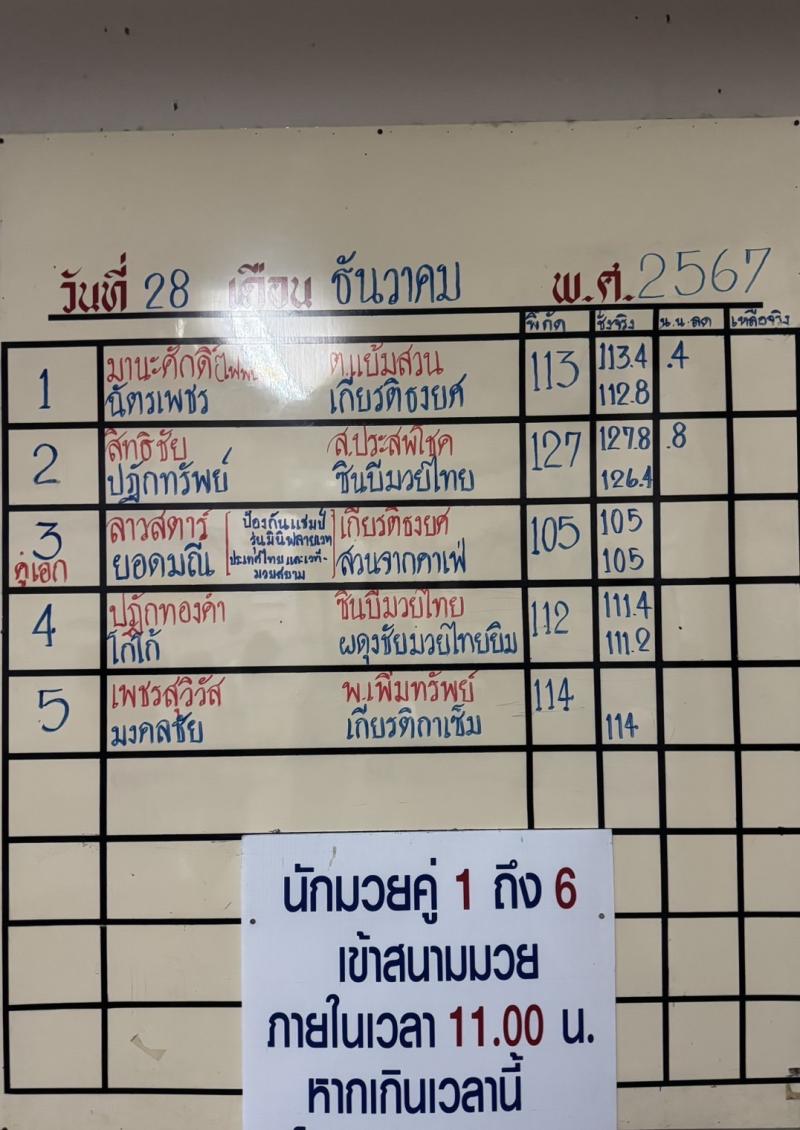 วันที่ 28 เดือน ธันวาคม พ.ศ. 2567
พิกัด ชั่งจริง น.น.ลด เหลือจริง
1 มานะศักดิ์ ต.แย้มสวน 113 113.4 .4
ฉัตรเพชร เกียรติธงยศ 112.8
2 สิทธิชัย ส.ประสพโชค 127 127.8 .8
ปฏักทรัพย์ ซินบีมวยไทย 126.4
3 ลาวสตาร์ เกียรติธงยศ 105 105
คู่เอก ยอดมณี สวนจากคาเฟ่ 105
ป้องกันแชมป์
รุ่นมินิฟลายเวท
ประเทศไทยและเวที-
มวยสยาม
4 ปฏักทองคำ ซินบีมวยไทย 112 111.4
โกโก้ ผดุงชัยมวยไทยยิม 111.2
5 เพชรสุวิรัส พ.เพิ่มทรัพย์ 114
มงคลชัย เกียรติกาเซ็ม 114
นักมวยคู่ 1 ถึง 6
เข้าสนามมวย
ภายในเวลา 11.00 น.
หากเกินเวลานี้